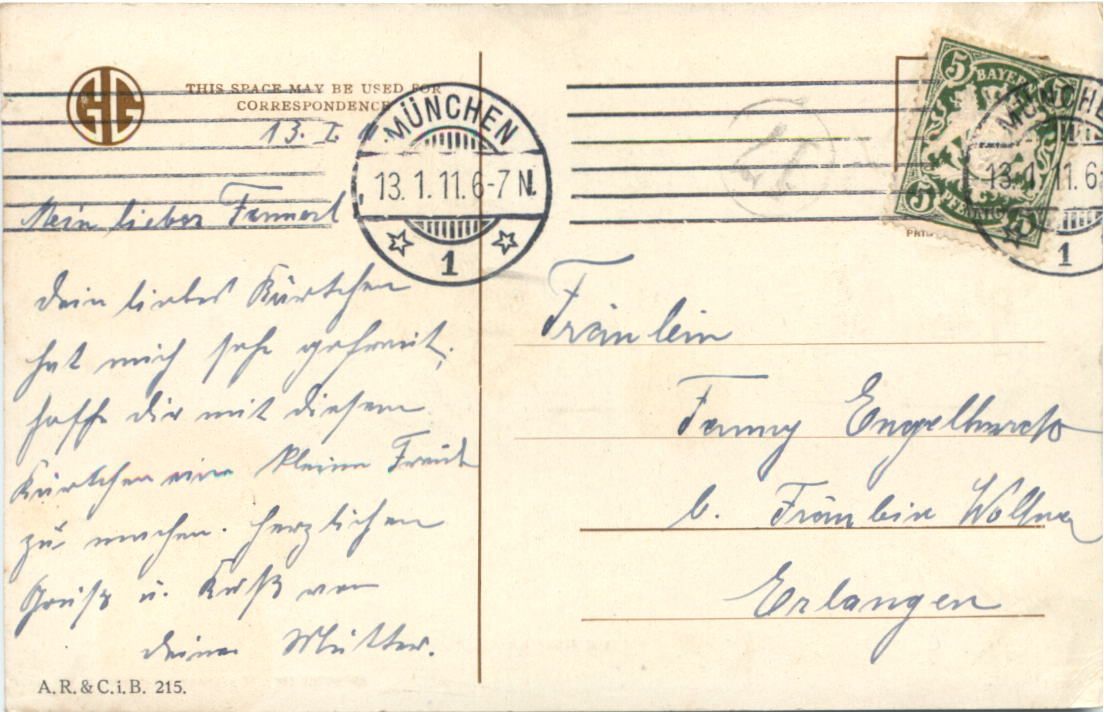 THIS SPACE MAY BE USED FOR
CORRESPONDENCE
13. I. 11
MÜNCHEN
13.1.11.6-7 N.
1
BAYERN
5
5
5
5
PFENNIG
MÜNCHEN
13.1.11.6-
1
Mein lieber Fannerl
dein liebes Kärtchen
hat mich sehr gefreut.
hoffe dir mit diesem
Kärtchen eine kleine Freude
zu machen. Herzlichen
Gruß u. Kuß von
deiner Mutter.
A.R.&C.i.B. 215.
Fräulein
Fanny
b. Fräulein
Erlangen